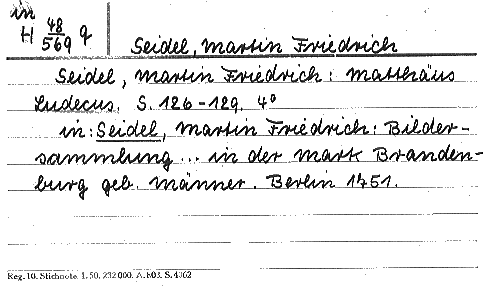 in
H 48/569 q
Seidel, Martin Friedrich
Seidel, Martin Friedrich: Matthäus
Ludecus. S. 126-129. 4°
in: Seidel, Martin Friedrich: Bilder-
sammlung ... in der Mark Branden-
burg geb. Männer. Berlin 1751.
Reg. 10. Stichnote. 1. 50. 232 000. A. 803. S. 4362